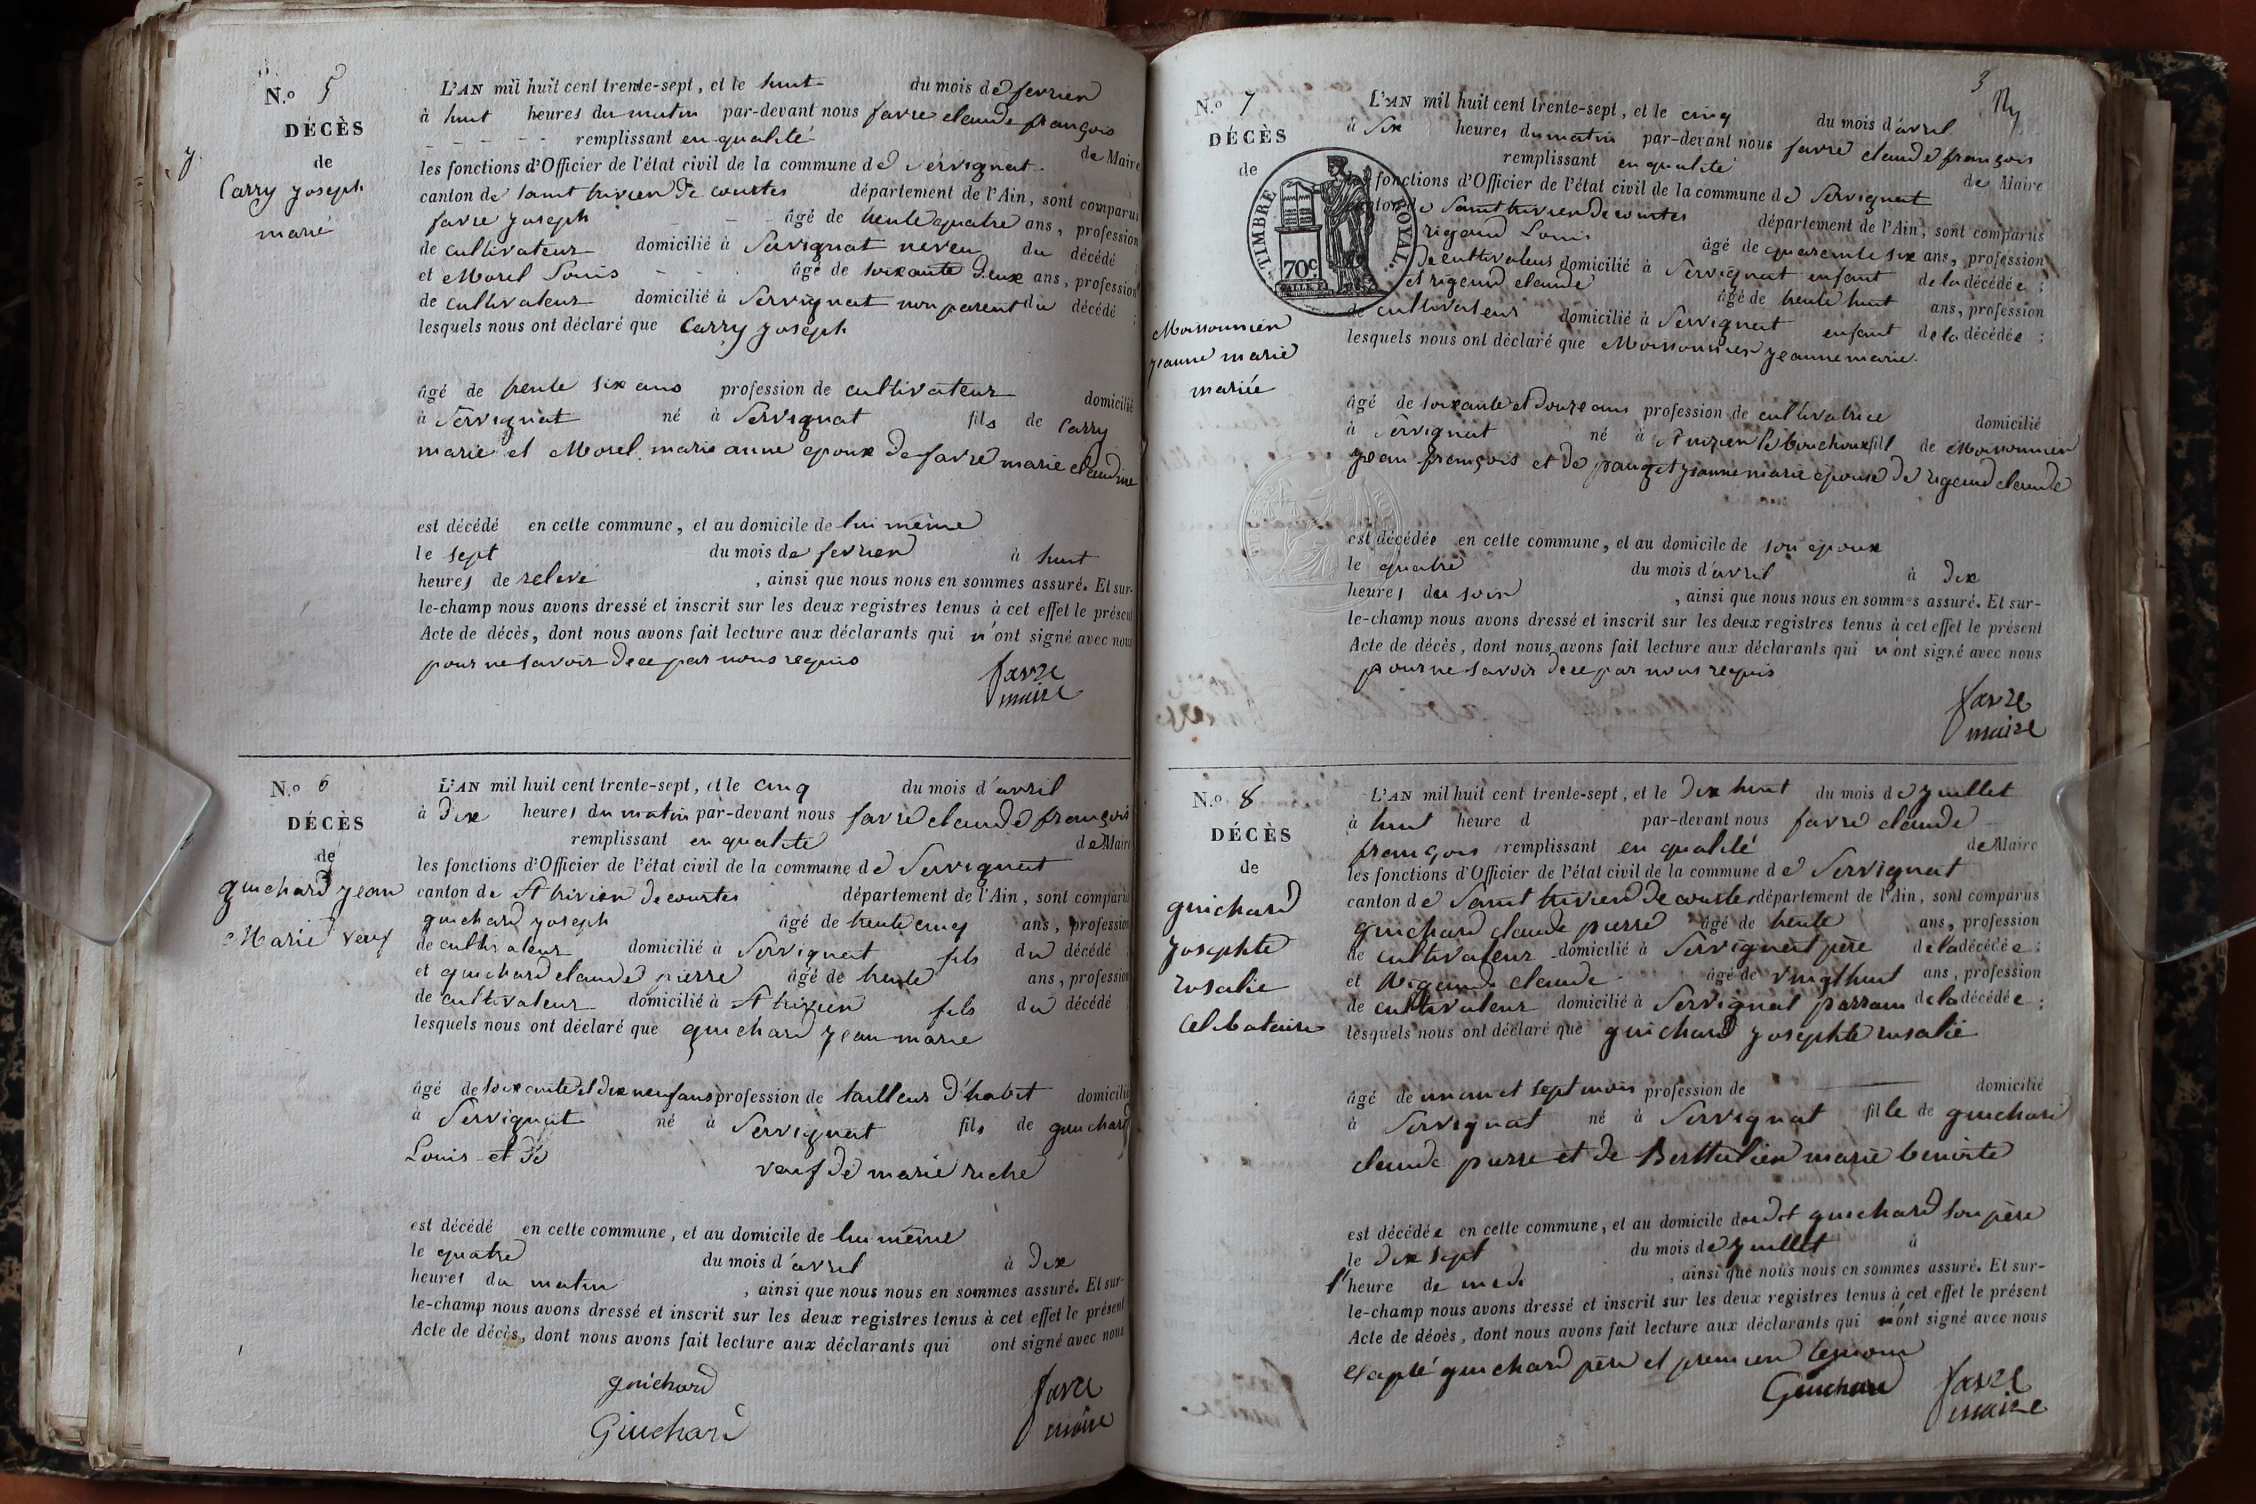 N.º 5
DÉCÈS
de
Carry joseph
marié
L'AN mil huit cent trente-sept, et le huit du mois de fevrier
à huit heures du matin par-devant nous favre claude françois
remplissant en qualité de Maire
les fonctions d'Officier de l'état civil de la commune de Servignat
canton de saint trivier de courtes département de l'Ain, sont comparus
favre joseph âgé de trente quatre ans, profession
de cultivateur domicilié à Servignat neveu du décédé ;
et Morel Louis âgé de soixante deux ans, profession
de cultivateur domicilié à Servignat non parent du décédé ;
lesquels nous ont déclaré que Carry joseph
âgé de trente six ans profession de cultivateur domicilié
à Servignat né à Servignat fils de Carry
marie et Morel marie anne epoux de favre marie claudine
est décédé en cette commune, et au domicile de lui même
le sept du mois de fevrier à huit
heures de relevé , ainsi que nous nous en sommes assuré. Et sur-
le-champ nous avons dressé et inscrit sur les deux registres tenus à cet effet le présent
Acte de décès, dont nous avons fait lecture aux déclarants qui n'ont signé avec nous
pour ne savoir de ce par nous requis
favre
maire
N.º 6
DÉCÈS
de
guichard jean
Marie veuf
L'AN mil huit cent trente-sept, et le cinq du mois d'avril
à dix heures du matin par-devant nous favre claude françois
remplissant en qualité de Maire
les fonctions d'Officier de l'état civil de la commune de Servignat
canton de St trivier de courtes département de l'Ain, sont comparus
guichard joseph âgé de trente cinq ans, profession
de cultivateur domicilié à Servignat fils du décédé
et guichard claude pierre âgé de trente ans, profession
de cultivateur domicilié à St trivier fils du décédé
lesquels nous ont déclaré que guichard jean marie
âgé de soixante et dix neuf ans profession de tailleur d'habit domicilié
à Servignat né à Servignat fils de guichard
Louis et de veuf de marie riche
est décédé en cette commune, et au domicile de lui même
le quatre du mois d'avril à dix
heures du matin , ainsi que nous nous en sommes assuré. Et sur-
le-champ nous avons dressé et inscrit sur les deux registres tenus à cet effet le présent
Acte de décès, dont nous avons fait lecture aux déclarants qui ont signé avec nous
guichard
Guichard
favre
maire
3
N.º 7
DÉCÈS
de
Moissonnier
jeanne marie
mariée
TIMBRE ROYAL
70c.
L'AN mil huit cent trente-sept, et le cinq du mois d'avril
à six heures du matin par-devant nous favre claude françois
remplissant en qualité de Maire
fonctions d'Officier de l'état civil de la commune de Servignat
canton de Saint trivier de courtes département de l'Ain, sont comparus
rigaud Louis âgé de quarante six ans, profession
de cultivateur domicilié à Servignat enfant de la décédée ;
et rigaud claude âgé de trente huit ans, profession
de cultivateur domicilié à Servignat enfant de la décédée ;
lesquels nous ont déclaré que Moissonnier jeanne marie
âgé de soixante et douze ans profession de cultivatrice domicilié
à Servignat né à St fil de Moissonnier
jean françois et de jeanne marie epouse de rigaud claude
est décédée en cette commune, et au domicile de son epoux
le quatre du mois d'avril à dix
heures du soir , ainsi que nous nous en sommes assuré. Et sur-
le-champ nous avons dressé et inscrit sur les deux registres tenus à cet effet le présent
Acte de décès, dont nous avons fait lecture aux déclarants qui n'ont signé avec nous
pour ne savoir de ce par nous requis
favre
maire
N.º 8
DÉCÈS
de
guichard
josephte
rosalie
celibataire
L'AN mil huit cent trente-sept, et le dix huit du mois de juillet
à huit heure d par-devant nous favre claude
françois remplissant en qualité de Maire
les fonctions d'Officier de l'état civil de la commune de Servignat
canton de Saint trivier de courtes département de l'Ain, sont comparus
guichard claude pierre âgé de trente ans, profession
de cultivateur domicilié à Servignat père de la décédée ;
et Rigaud claude âgé de vingt huit ans, profession
de cultivateur domicilié à Servignat parrain de la décédée ;
lesquels nous ont déclaré que guichard josephte rosalie
âgé de un an et sept mois profession de domicilié
à Servignat né à Servignat fille de guichard
claude pierre et de marie benoite
est décédée en cette commune, et au domicile dudit guichard son père
le dix sept du mois de juillet à
l'heure de midi , ainsi que nous nous en sommes assuré. Et sur-
le-champ nous avons dressé et inscrit sur les deux registres tenus à cet effet le présent
Acte de décès, dont nous avons fait lecture aux déclarants qui n'ont signé avec nous
excepté guichard père et premier temoin
Guichard
favre
maire